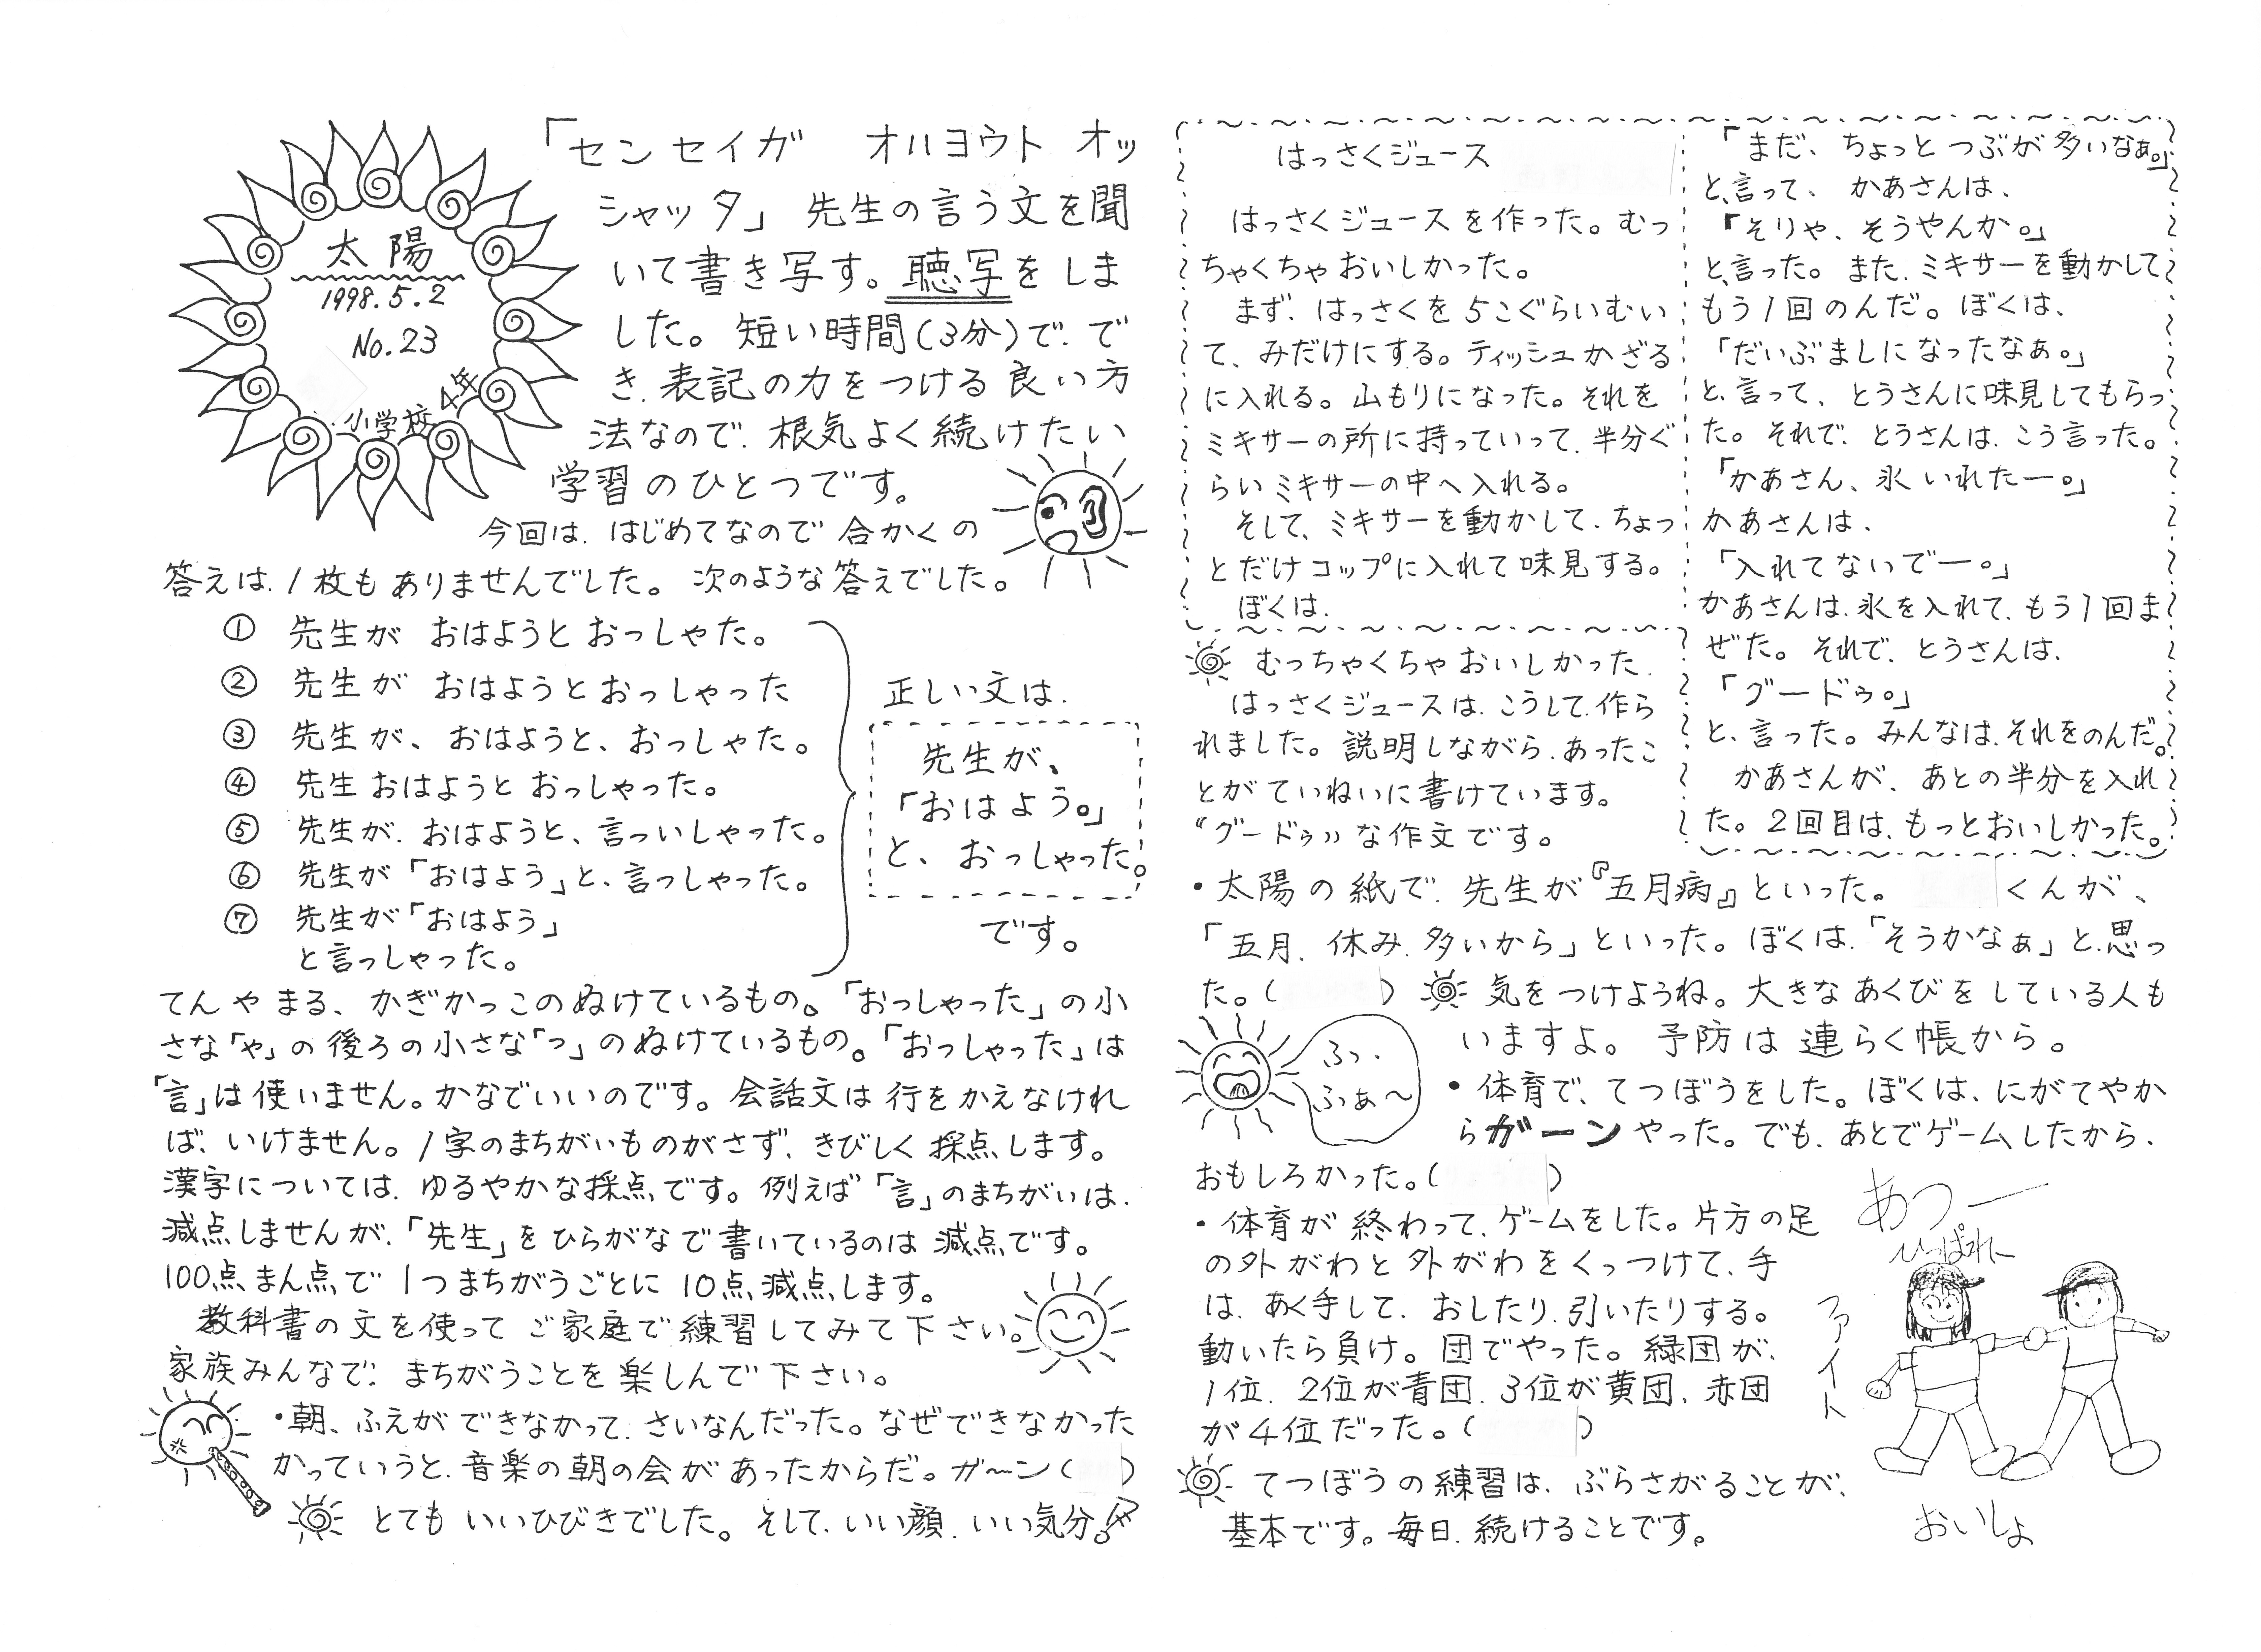 太陽
1998.5.2
No.23
小学校4年
「センセイガ オハヨウト オッ
シャッタ」先生の言う文を聞
いて書き写す。聴写をしま
した。短い時間(3分)で、で
き、表記の力をつける良い方
法なので、根気よく続けたい
学習のひとつです。
今回は、はじめてなので合かくの
答えは、1枚もありませんでした。次のような答えでした。
① 先生が おはようと おっしゃた。
② 先生が おはようと おっしゃった
③ 先生が、おはようと、おっしゃた。
④ 先生 おはようと おっしゃった。
⑤ 先生が、おはようと、言っいしゃった。
⑥ 先生が「おはよう」と、言っしゃった。
⑦ 先生が「おはよう」
と言っしゃった。
正しい文は、
先生が、
「おはよう。」
と、おっしゃった。
です。
てんやまる、かぎかっこのぬけているもの。「おっしゃった」の小
さな「ゃ」の後ろの小さな「っ」のぬけているもの。「おっしゃった」は
「言」は使いません。かなでいいのです。会話文は行をかえなけれ
ば、いけません。1字のまちがいものがさず、きびしく採点します。
漢字については、ゆるやかな採点です。例えば「言」のまちがいは、
減点しませんが、「先生」をひらがなで書いているのは減点です。
100点まん点で1つまちがうごとに10点減点します。
教科書の文を使ってご家庭で練習してみて下さい。
家族みんなで、まちがうことを楽しんで下さい。
・朝、ふえができなかって、さいなんだった。なぜできなかった
かっていうと、音楽の朝の会があったからだ。ガ〜ン( )
とてもいいひびきでした。そして、いい顔、いい気分。
はっさくジュース
はっさくジュースを作った。むっ
ちゃくちゃおいしかった。
まず、はっさくを5こぐらいむい
て、みだけにする。ティッシュかざる
に入れる。山もりになった。それを
ミキサーの所に持っていって、半分ぐ
らいミキサーの中へ入れる。
そして、ミキサーを動かして、ちょっ
とだけコップに入れて味見する。
ぼくは、
「まだ、ちょっとつぶが多いなぁ。」
と、言って、かあさんは、
「そりゃ、そうやんか。」
と、言った。また、ミキサーを動かして、
もう1回のんだ。ぼくは、
「だいぶましになったなぁ。」
と、言って、とうさんに味見してもらっ
た。それで、とうさんは、こう言った。
「かあさん、氷いれたー。」
かあさんは、
「入れてないでー。」
かあさんは、氷を入れて、もう1回ま
ぜた。それで、とうさんは、
「グードゥ。」
と、言った。みんなは、それをのんだ。
かあさんが、あとの半分を入れ
た。2回目は、もっとおいしかった。
むっちゃくちゃおいしかった
はっさくジュースは、こうして、作ら
れました。説明しながら、あったこ
とがていねいに書けています。
“グードゥ”な作文です。
・太陽の紙で、先生が『五月病』といった。 くんが、
「五月、休み、多いから」といった。ぼくは、「そうかなぁ」と、思っ
た。( ) 気をつけようね。大きなあくびをしている人も
いますよ。予防は連らく帳から。
ふっ、
ふぁ〜
・体育で、てつぼうをした。ぼくは、にがてやか
らガーンやった。でも、あとでゲームしたから、
おもしろかった。( )
・体育が終わって、ゲームをした。片方の足
の外がわと外がわをくっつけて、手
は、あく手して、おしたり、引いたりする。
動いたら負け。団でやった。緑団が、
1位、2位が青団、3位が黄団、赤団
が4位だった。( )
あつー
ひっぱれー
ファイト
おいしょ
てつぼうの練習は、ぶらさがることが、
基本です。毎日、続けることです。